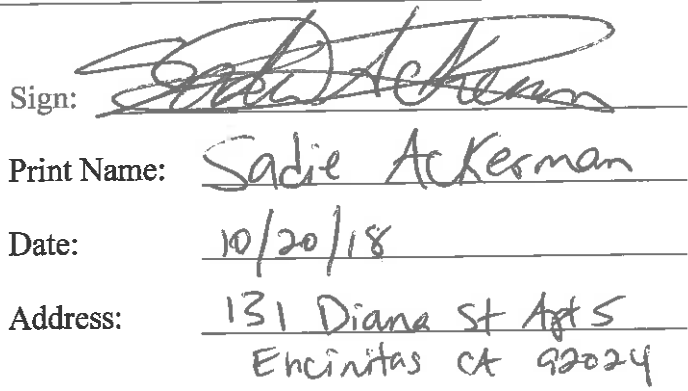 Sign: Sadie Ackerman
Print Name: Sadie Ackerman
Date: 10/20/18
Address: 131 Diana St Apt 5
Encinitas CA 92024